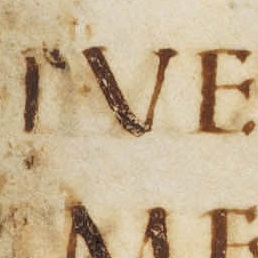 IVE
ME